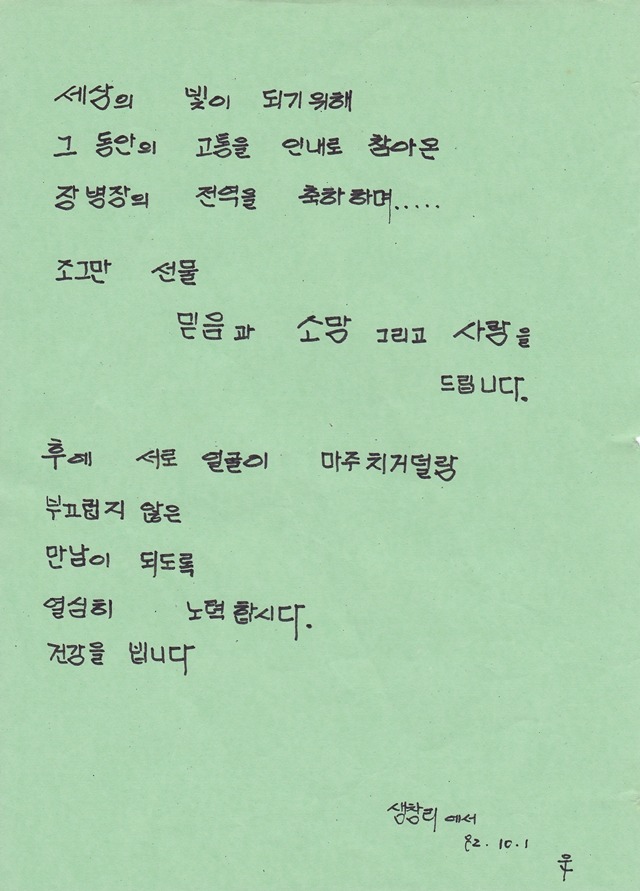 세상의 빛이 되기위해
그 동안의 고통을 인내로 참아온
장병장의 전역을 축하하며.....
조그만 선물
믿음과 소망 그리고 사랑을
드립니다.
후에 서로 얼골이 마주치거덜랑
부끄럽지 않은
만남이 되도록
열심히 노력합시다.
건강을 빕니다
생창리에서
82.10.1